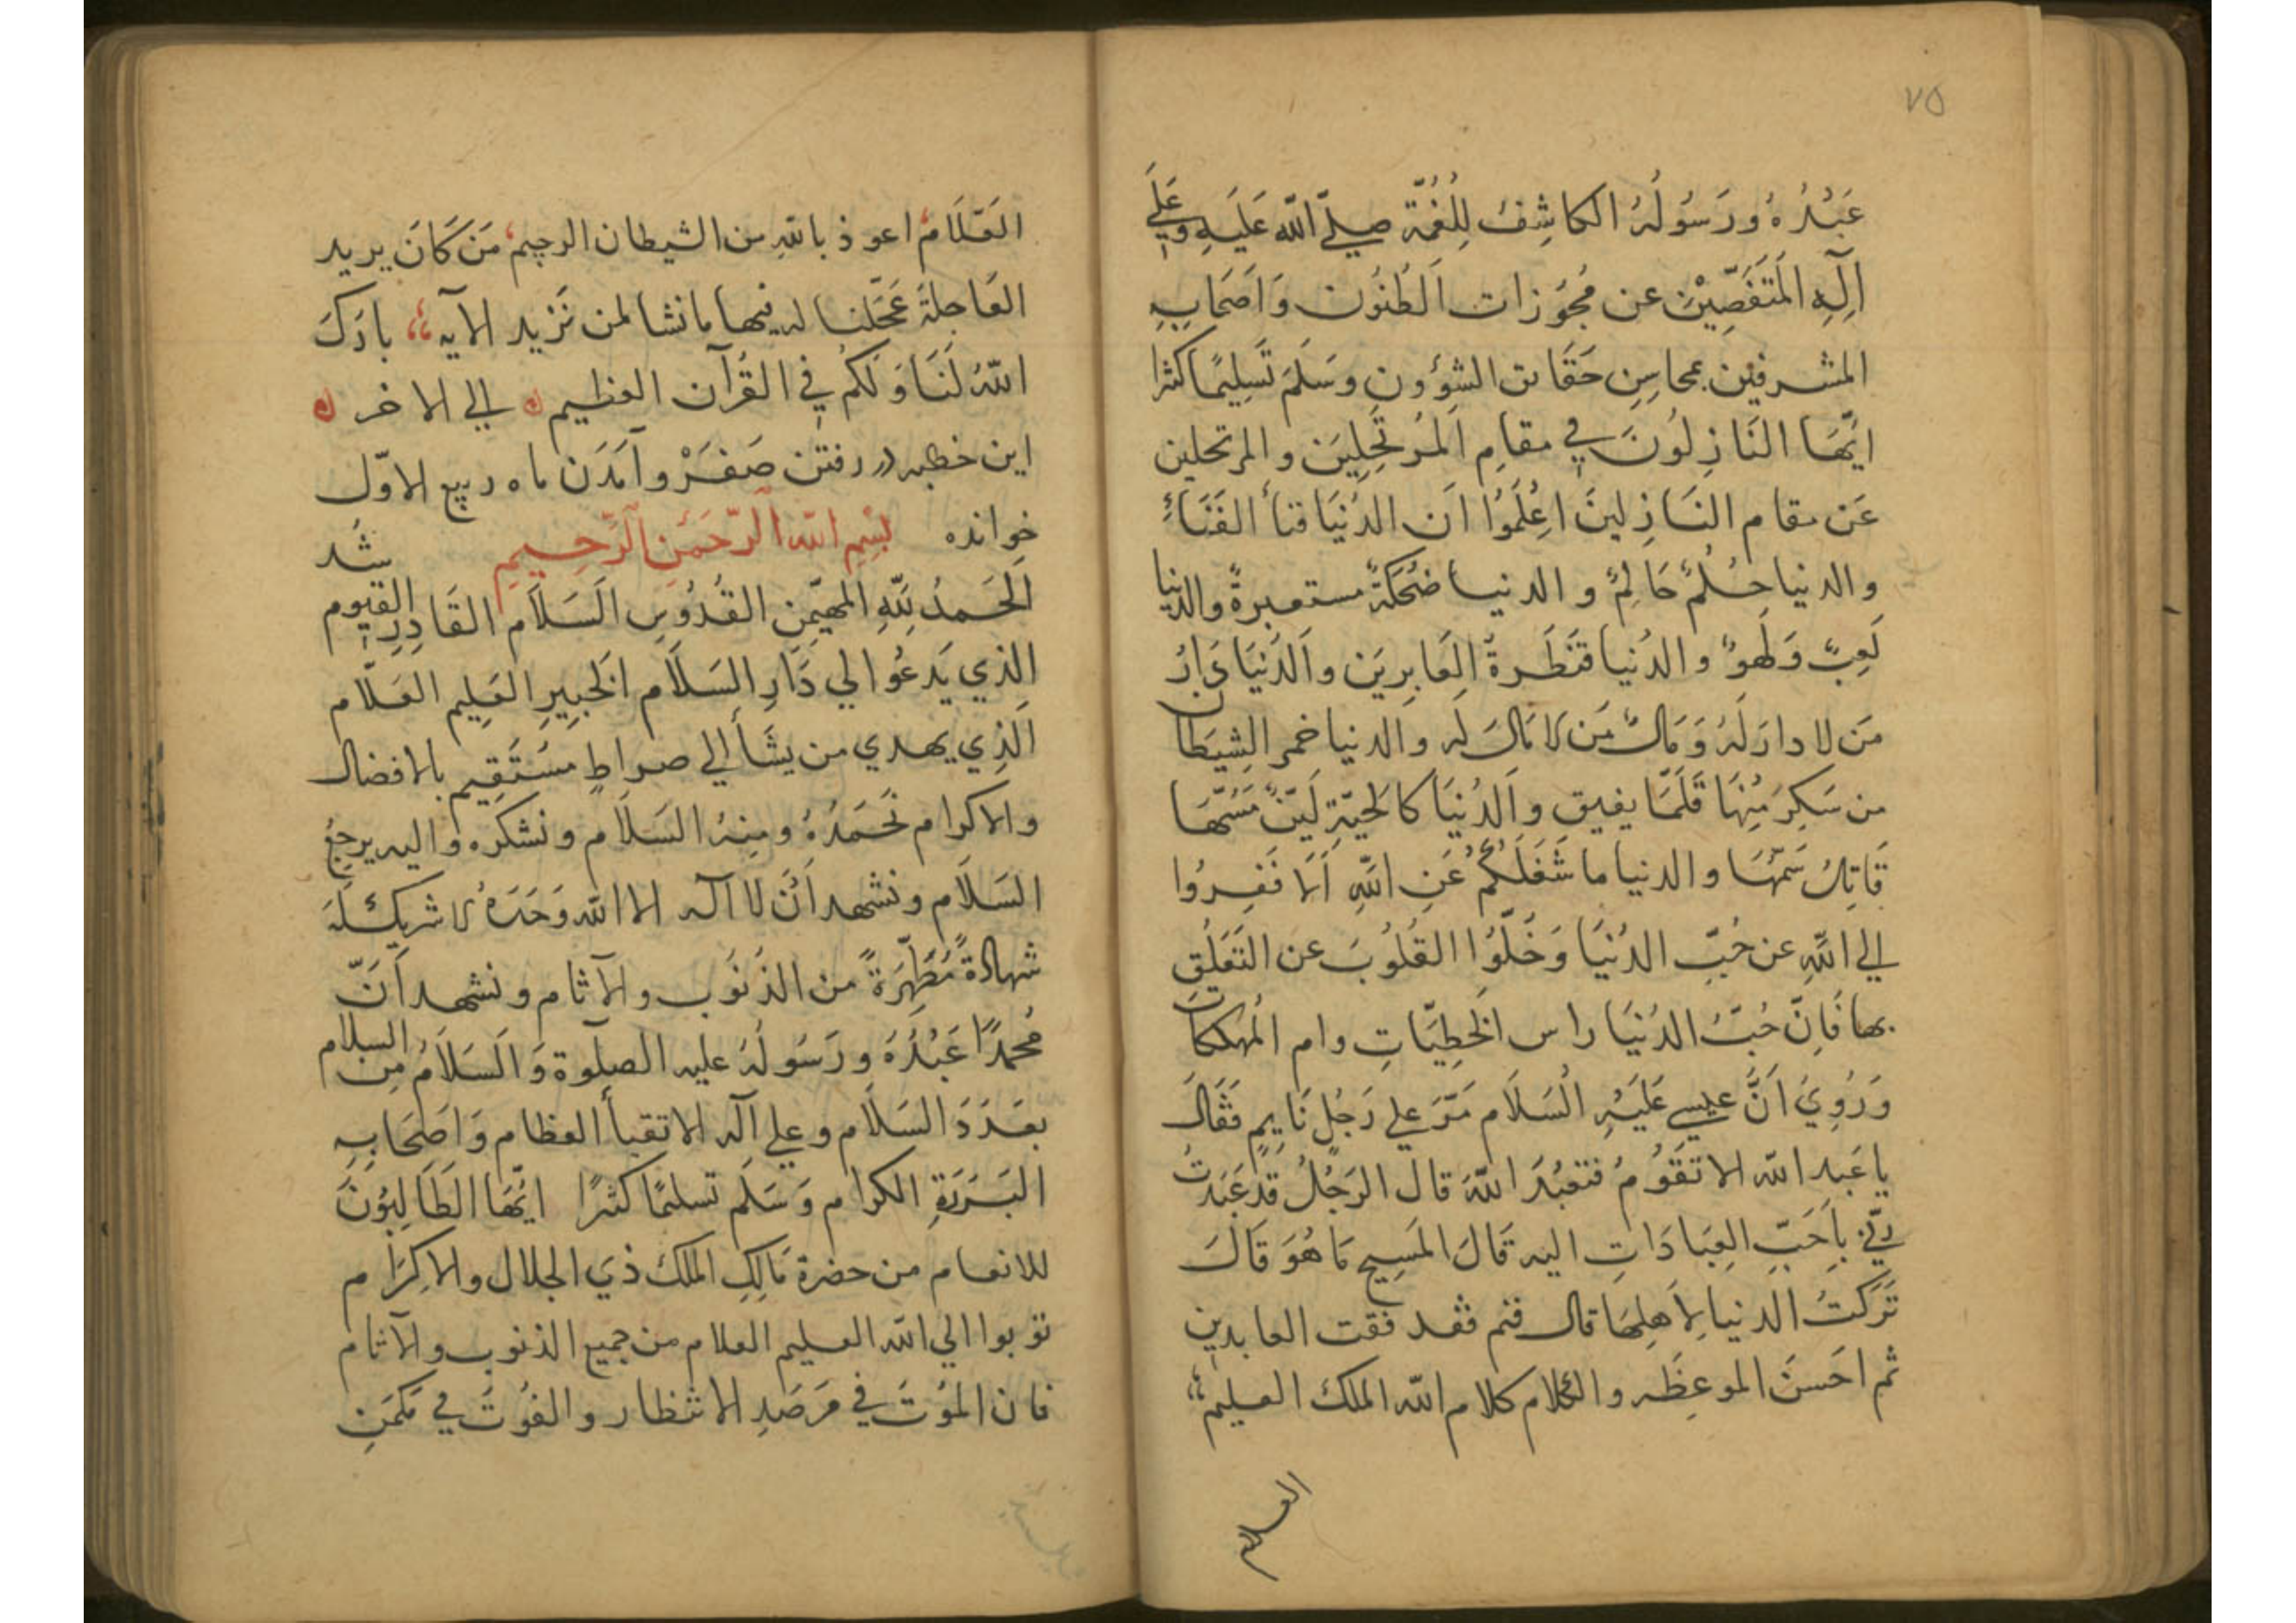 ٧٥
عَبْدُهُ وَرَسُولُهُ الكاشِفُ لِلْغُمَّة صلّي اللّه عَلَيهِ وَعَلي
آلِهِ المُتَفَصِّيْنَ عن مُجَوَّزات الظُنُون وَاَصَحَابِهِ
المشرفين بمحاسِنِ حَقَائق الشؤون وسَلَّمَ تَسلِيمًا كثرا
ايُّهَا النَازِلُونَ في مقامِ المُرتَحِلِينَ والمرتحلين
عَن مقام النَازِلينَ اِعْلَمُوا اَن الدُنيَا فنأ الفَنَاءِ
والدنيا حُلُمُ حَالِمٍ والدنيا ضُحكَةٌ مستعبرةٌ والدنيا
لَعِبٌ وَلَهوٌ والدُنيا قنَطَرةُ العَابِرِينَ والدُنيَا دَارُ
مَن لا دارَ لَهُ وَمَالُ مَن لا مَالَ لَه والدنيا خمر الشيَطَان
من سَكِرَ مِنهَا قَلَّمَا يفيق والدُنيَا كالحَيّةِ لَيّنٌ مَسُّهَا
قَاتِلٌ سَمُّهَا والدنيا ما شَغَلَكُمْ عَنِ اللّهِ اَلا فَفِرُوا
الي اللّهِ عن حُبِّ الدُنيَا وَخَلُّوا القُلُوبَ عن التَعَلُقِ
بها فَاِنَّ حُبَّ الدُنيَا راس الخَطِيّاتِ وام المُهلكات
وَرُوِيَ اَنَّ عيسي عَلَيْهِ السَلاَم مَرَّ علي رَجُلٍ نَايِمٍ فَقَالَ
يا عَبد اللّه الا تَقُومُ فتعبُدَ اللّهَ قال الرَجُلُ قَد عَبَدتُ
رَبّي بِاَحَبِّ العِبَادَاتِ اليه قَالَ المَسِيح مَا هُوَ قَالَ
تَرَكتُ الدنيا لِاَهلِهَا قال فنم فقد فقت العابدين
ثم احَسنَ الموعِظَه والكلام كلام اللّه الملك العليم
العلام
العَلّاَم اعوذ باللّهِ من الشيطان الرجيم مَن كَانَ يريد
العَاجلةَ عَجّلنا له فيها ما نشا لمن نَرْيد الآيه بارَكَ
اللّهُ لَنَا وَلَكُم في القُرآن العظيم الي الاخر
اين خطبه در رفتن صَفَرْ وآمَدَن ماه ربيع الاوّل
خوانده شد بِسْمِ اللّهِ الرّحمَنِ الرّحيمِ
اَلحَمدُ لِلّهِ المهَيْمِنِ القُدُوسِ السَلاَم القَادِرِ القيوم
الَذي يَدعُو الي دَارِ السَلاَم الخَبِيرِ العَلِيم العَلّام
الَذِي يهدي من يشَأ الي صراطٍ مستَقِيم بالافضال
والاكرام نَحَمَدُهُ ومِنهُ السَلاَم ونشكره واليه يرجعُ
السَلاَم ونشهد اَنْ لا اله الا اللّه وَحَدَهُ لا شريك لَهُ
شهادةً مُطَهِّرَةً من الذُنَوب والآثام ونشهد اَنّ
مُحمدًا عَبْدُهُ ورَسُولُهُ عليه الصلوة وَالسَلاَمُ مِن السلام
بعَدَدَ السَلاَم وعلي آله الاتقيأ العظام وَاصَحَابِهِ
البَرَرَةِ الكرام وَسَلَّم تسليمًا كثيرًا ايُّهَا الطَالِبُونَ
للانعام من حضرة مَالِكِ الملك ذي الجلال والاكِرَام
توبوا الي اللّه العليم العلام من جميع الذنوب والآثام
فان المَوُتَ في مَرصَدِ الانتظار والفَوُتَ في مَكمَنِ